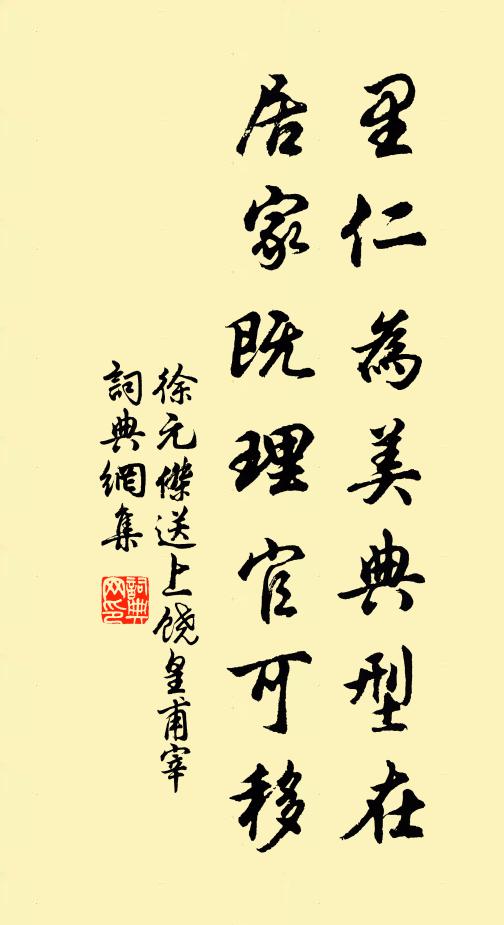 里仁為美典型在
居家既理官可移
徐元傑送上饒皇甫宰
詞典網集
詞典